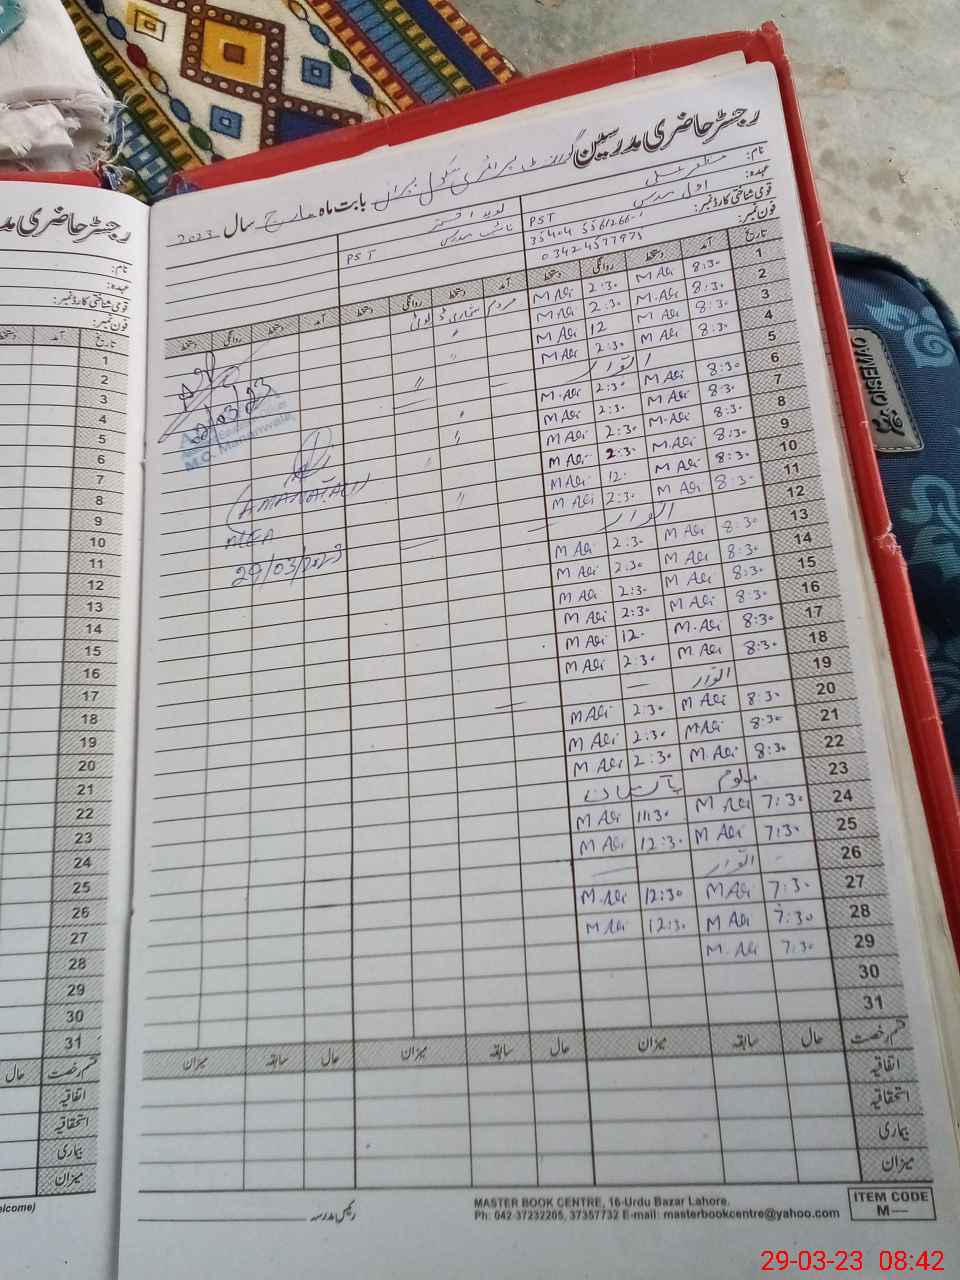 رجسٹر حاضری مدرسین گورنمنٹ پرائمری سکول بابت ماہ مارچ سال 2023
نام:
عہدہ: اول مدرس PST
قومی شناختی کارڈ نمبر: 35404 5561266-1
فون نمبر: 03424577975
نائب مدرس
PST
تاریخ آمد دستخط روانگی دستخط آمد دستخط روانگی دستخط آمد دستخط روانگی دستخط
1 8:30 M Ali 2:30 M Ali
2 8:30 M. Ali 2:30 M Ali
3 8:30 M Ali 12 M Ali
4 8:30 M Ali 2:30 M Ali
5 اتوار
6 8:30 M Ali 2:30 M. Ali
7 8:30 M Ali 2:30 M Ali
8 8:30 M. Ali 2:30 M Ali
9 8:30 M Ali 2:30 M Ali
10 8:30 M Ali 12 M Ali
11 8:30 M Ali 2:30 M Ali
12 اتوار
13 8:30 M Ali 2:30 M Ali
14 8:30 M Ali 2:30 M Ali
15 8:30 M Ali 2:30 M Ali
16 8:30 M Ali 2:30 M Ali
17 8:30 M. Ali 12 M Ali
18 8:30 M Ali 2:30 M Ali
19 اتوار
20 8:30 M Ali 2:30 M Ali
21 8:30 M Ali 2:30 M Ali
22 8:30 M. Ali 2:30 M Ali
23 یوم پاکستان
24 7:30 M Ali 11:30 M Ali
25 7:30 M Ali 12:30 M Ali
26 اتوار
27 7:30 M Ali 12:30 M. Ali
28 7:30 M Ali 12:30 M Ali
29 7:30 M. Ali
30
31
M.C. Mananwala
(AMANAT ALI)
MEA
29/03/2023
قسم رخصت حال سابقہ میزان حال سابقہ میزان حال سابقہ میزان
اتفاقیہ
استحقاقیہ
بیماری
میزان
رئیس مدرسہ
MASTER BOOK CENTRE, 16-Urdu Bazar Lahore.
Ph: 042-37232205, 37357732 E-mail: masterbookcentre@yahoo.com
ITEM CODE
M—
رجسٹر حاضری
نام:
عہدہ:
قومی شناختی کارڈ نمبر:
فون نمبر:
تاریخ آمد دستخط
1
2
3
4
5
6
7
8
9
10
11
12
13
14
15
16
17
18
19
20
21
22
23
24
25
26
27
28
29
30
31
قسم رخصت حال
اتفاقیہ
استحقاقیہ
بیماری
میزان
QISEMAO
29-03-23 08:42